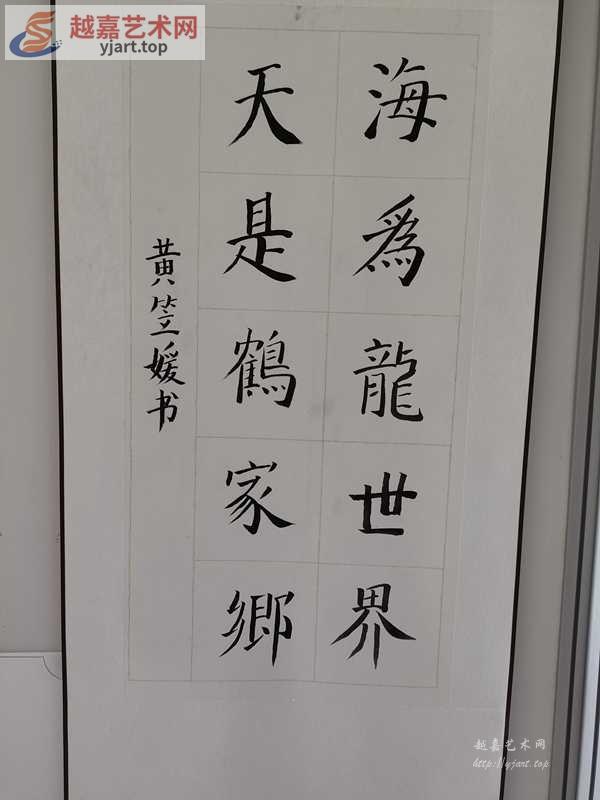 越嘉艺术网
yjart.top
海為龍世界
天是鶴家鄉
黄笠媛书
越嘉艺术网
http://yjart.top